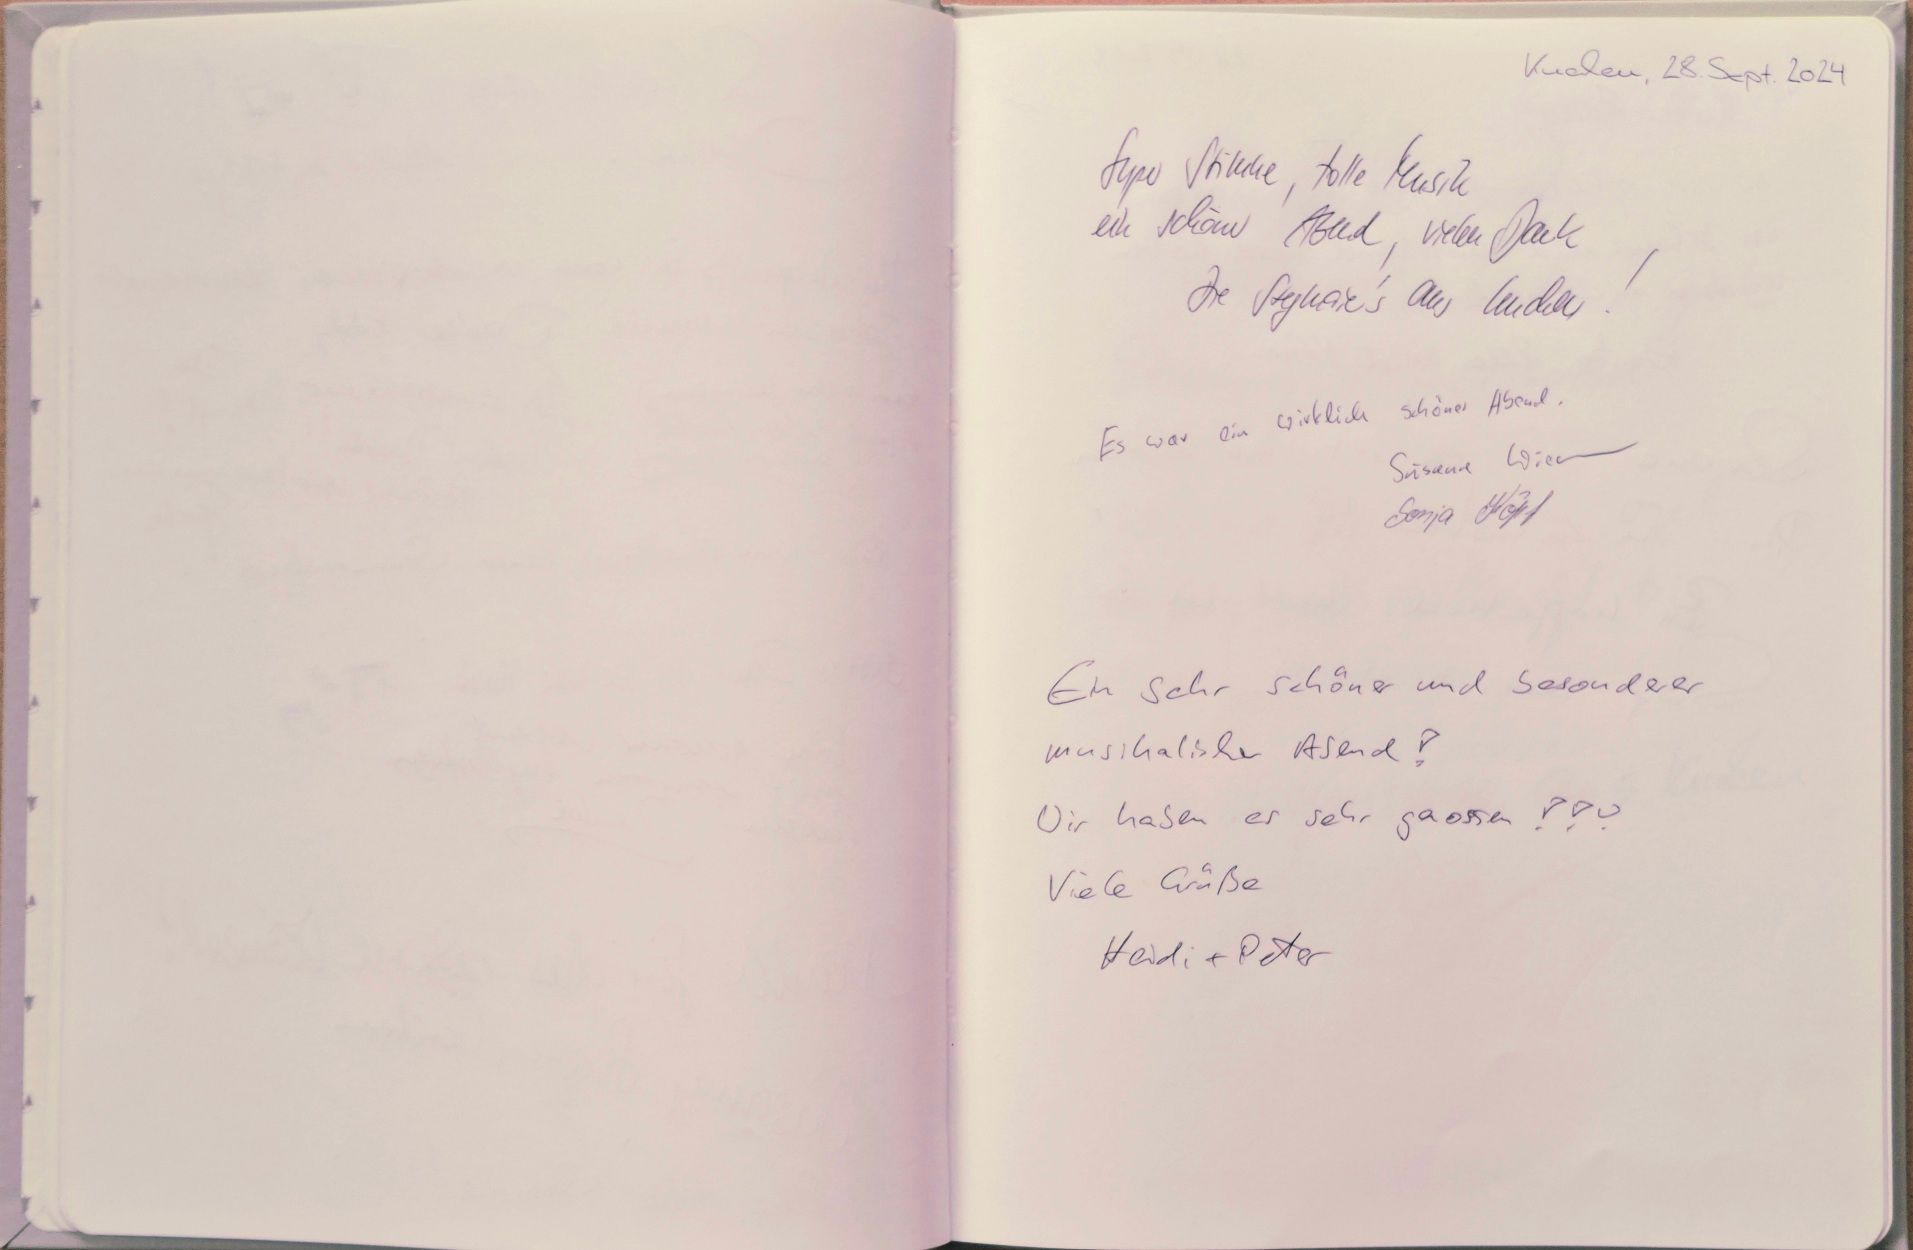 Kuchen, 28. Sept. 2024
Super Stimme, tolle Musik
ein schöner Abend, vielen Dank
Die aus Kuchen!
Es war ein wirklich schöner Abend.
Susanne
Sonja
Ein sehr schöner und besonderer
musikalischer Abend!
Wir haben es sehr genossen!!!
Viele Grüße
Heidi + Peter